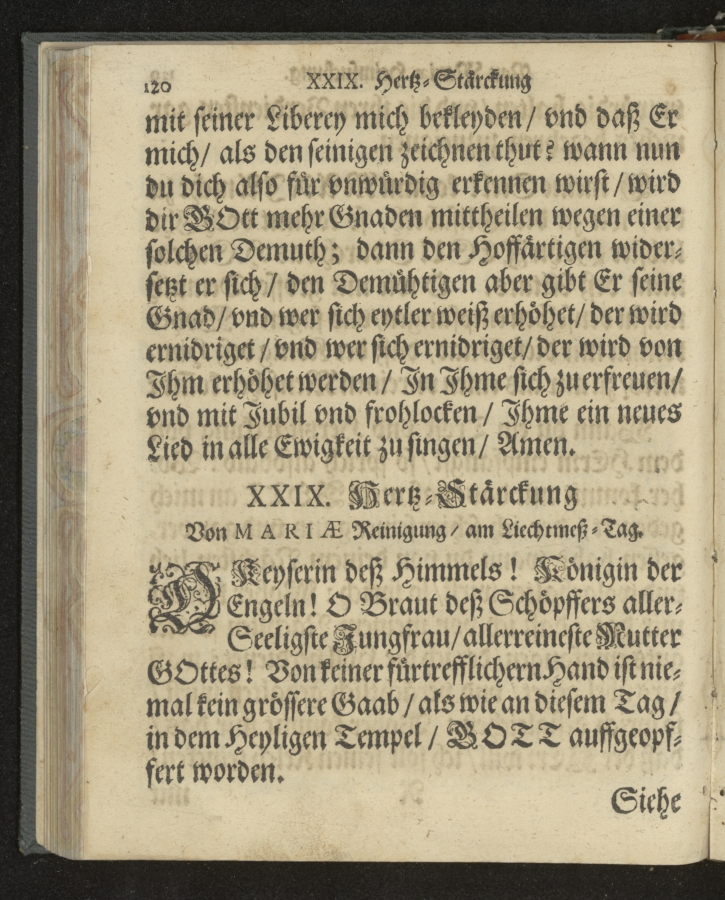 120 XXIX. Hertz-Stärckung
mit seiner Liberey mich bekleyden / vnd daß Er
mich/ als den seinigen zeichnen thut? wann nun
du dich also für vnwürdig erkennen wirst / wird
dir GOtt mehr Gnaden mittheilen wegen einer
solchen Demuth; dann den Hoffärtigen wider-
setzt er sich / den Demühtigen aber gibt Er seine
Gnad/ vnd wer sich eytler weiß erhöhet/ der wird
ernidriget / vnd wer sich ernidriget/ der wird von
Ihm erhöhet werden / In Ihme sich zu erfreuen/
vnd mit Jubil vnd frohlocken / Ihme ein neues
Lied in alle Ewigkeit zu singen / Amen.
XXIX. Hertz-Stärckung
Von MARIÆ Reinigung / am Liechtmeß-Tag.
O Keyserin deß Himmels! Königin der
Engeln! O Braut deß Schöpffers aller-
Seeligste Jungfrau/ allerreineste Mutter
GOttes! Von keiner fürtrefflichern Hand ist nie-
mal kein grössere Gaab / als wie an diesem Tag /
in dem Heyligen Tempel / GOTT auffgeopf-
fert worden.
Siehe